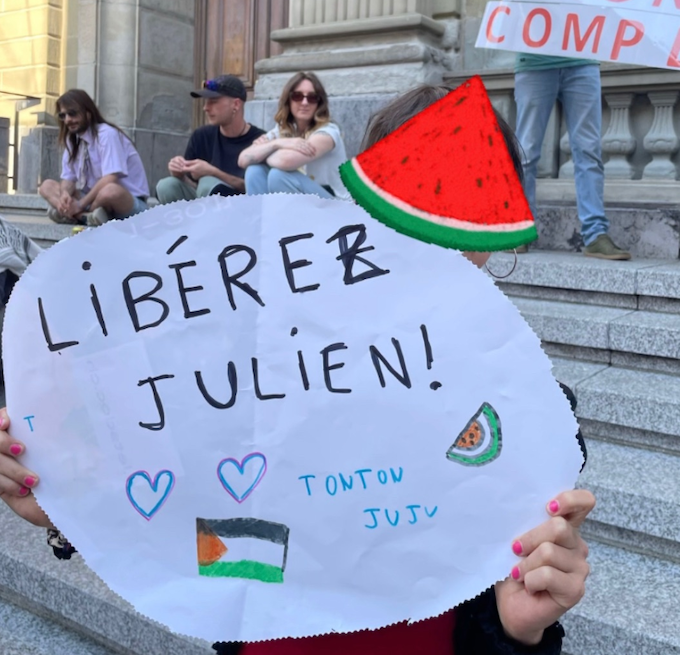 COMP
LIBÉREZ
JULIEN!
T
TONTON
JUJU